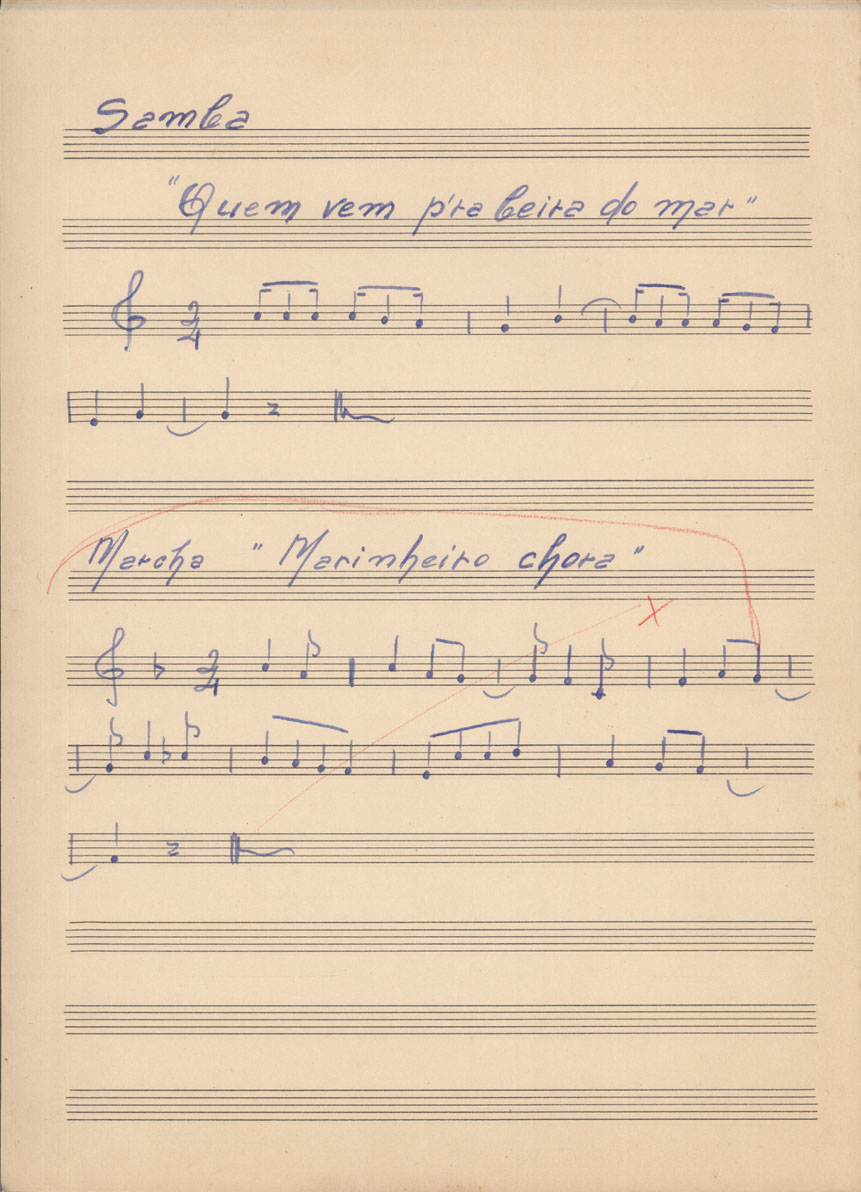 Samba
"Quem vem p'ra beira do mar"
2/4
Marcha "Marinheiro chora"
2/4